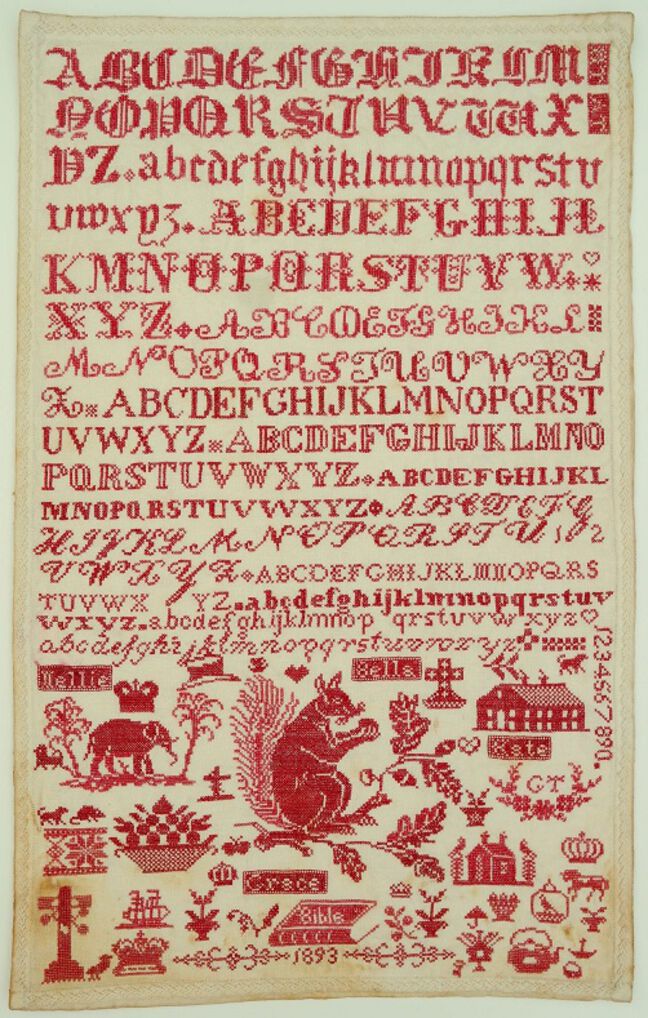 ABCDEFGHIJKLM
NOPQRSTUVWX
YZ.abcdefghijklmnopqrstu
vwxyz.ABCDEFGHIJL
KMNOPQRSTUVW.
XYZ.ABCDEFGHIKL
MNOPQRSTUVWXY
Z ABCDEFGHIJKLMNOPQRST
UVWXYZ ABCDEFGHIJKLMNO
PQRSTUVWXYZ.ABCDEFGHIJKL
MNOPQRSTUVWXYZ ABCDEFG
HIJKLMNOPQRSTU 1 2
VWXYZ ABCDEFGHIJKLMNOPQRS
TUVWX YZ.abcdefghijklmnopqrstuv
wxyz.abcdefghijklmnop qrstuvwxyz
abcdefghijklmnopqrstuvwxyz
1234567890.
Nellie
Bella
Kate
G T
Grace
Bible
1893